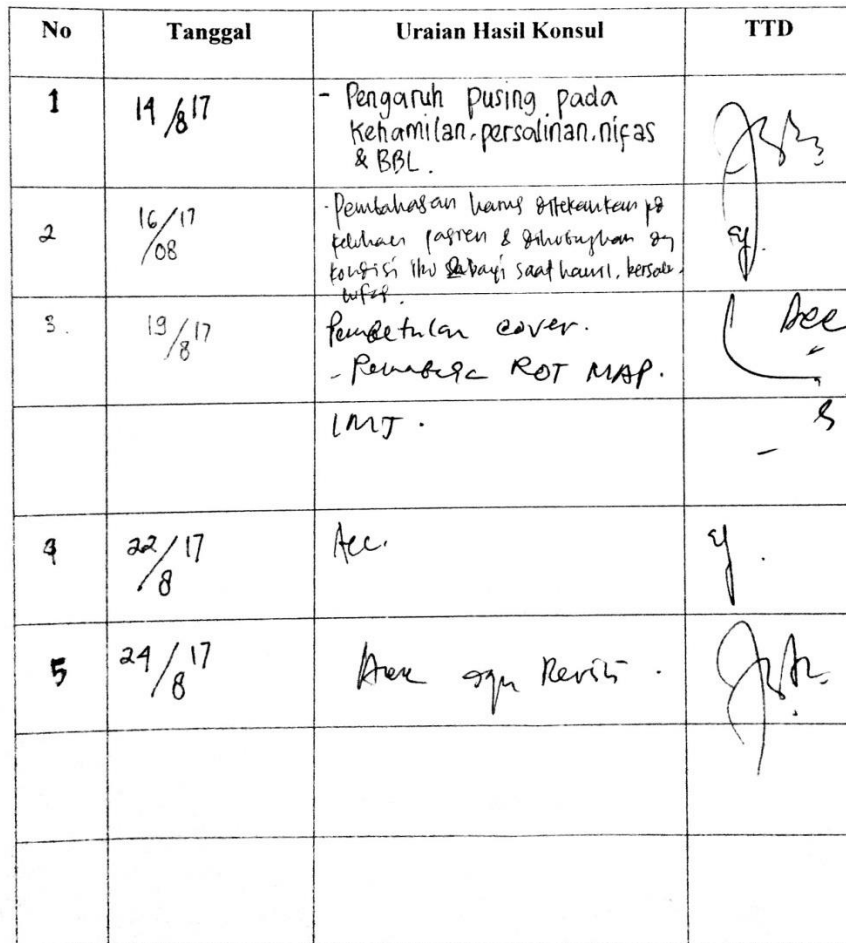 No Tanggal Uraian Hasil Konsul TTD
1 14/8 17 - Pengaruh pusing pada
kehamilan, persalinan, nifas
& BBL.
2 16/17
/08 - Pembahasan harus ditekankan pd
keluhan pasien & dihubungkan dg
kondisi ibu & bayi saat hamil, bersalin,
nifas.
3. 19/17
/8 Pembetulan cover. Acc
- ROT MAP.
IMT.
4 22/17
/8 Acc.
5 24/17
/8 Acc dgn Revisi.